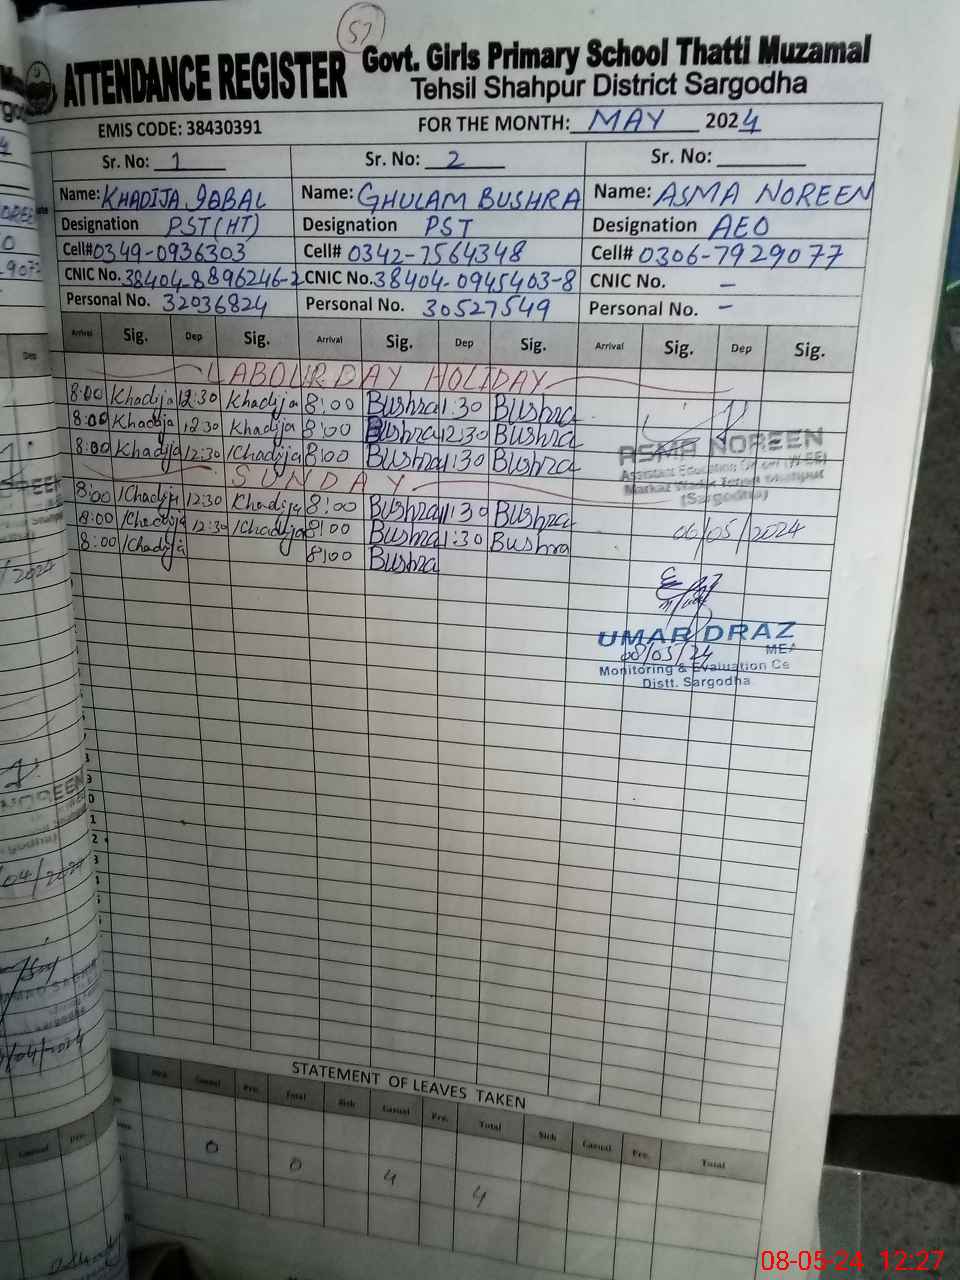 57
ATTENDANCE REGISTER Govt. Girls Primary School Thatti Muzamal
Tehsil Shahpur District Sargodha
EMIS CODE: 38430391 FOR THE MONTH: MAY 2024
Sr. No: 1 Sr. No: 2 Sr. No:
Name: KHADIJA IQBAL Name: GHULAM BUSHRA Name: ASMA NOREEN
Designation PST(HT) Designation PST Designation AEO
Cell# 0349-0936303 Cell# 0342-7564348 Cell# 0306-7929077
CNIC No. 38404-8896246-2 CNIC No. 38404-0945403-8 CNIC No. -
Personal No. 32036824 Personal No. 30527549 Personal No. -
Arrival Sig. Dep Sig. Arrival Sig. Dep Sig. Arrival Sig. Dep Sig.
LABOUR DAY HOLIDAY
8:00 Khadija 12:30 Khadija 8:00 Bushra 1:30 Bushra
8:00 Khadija 12:30 Khadija 8:00 Bushra 12:30 Bushra
8:00 Khadija 12:30 Khadija 8:00 Bushra 1:30 Bushra
ASMA NOREEN
SUNDAY
(Sargodha)
8:00 Khadija 12:30 Khadija 8:00 Bushra 1:30 Bushra
8:00 Khadija 12:30 Khadija 8:00 Bushra 1:30 Bushra
06/05/2024
8:00 Khadija 8:00 Bushra
UMAR DRAZ
08/05/24 MEA
Monitoring & Evaluation Ce
Distt. Sargodha
STATEMENT OF LEAVES TAKEN
Sick Casual Pre. Total Sick Casual Pre. Total Sick Casual Pre. Total
0 0 4 4
08-05-24 12:27